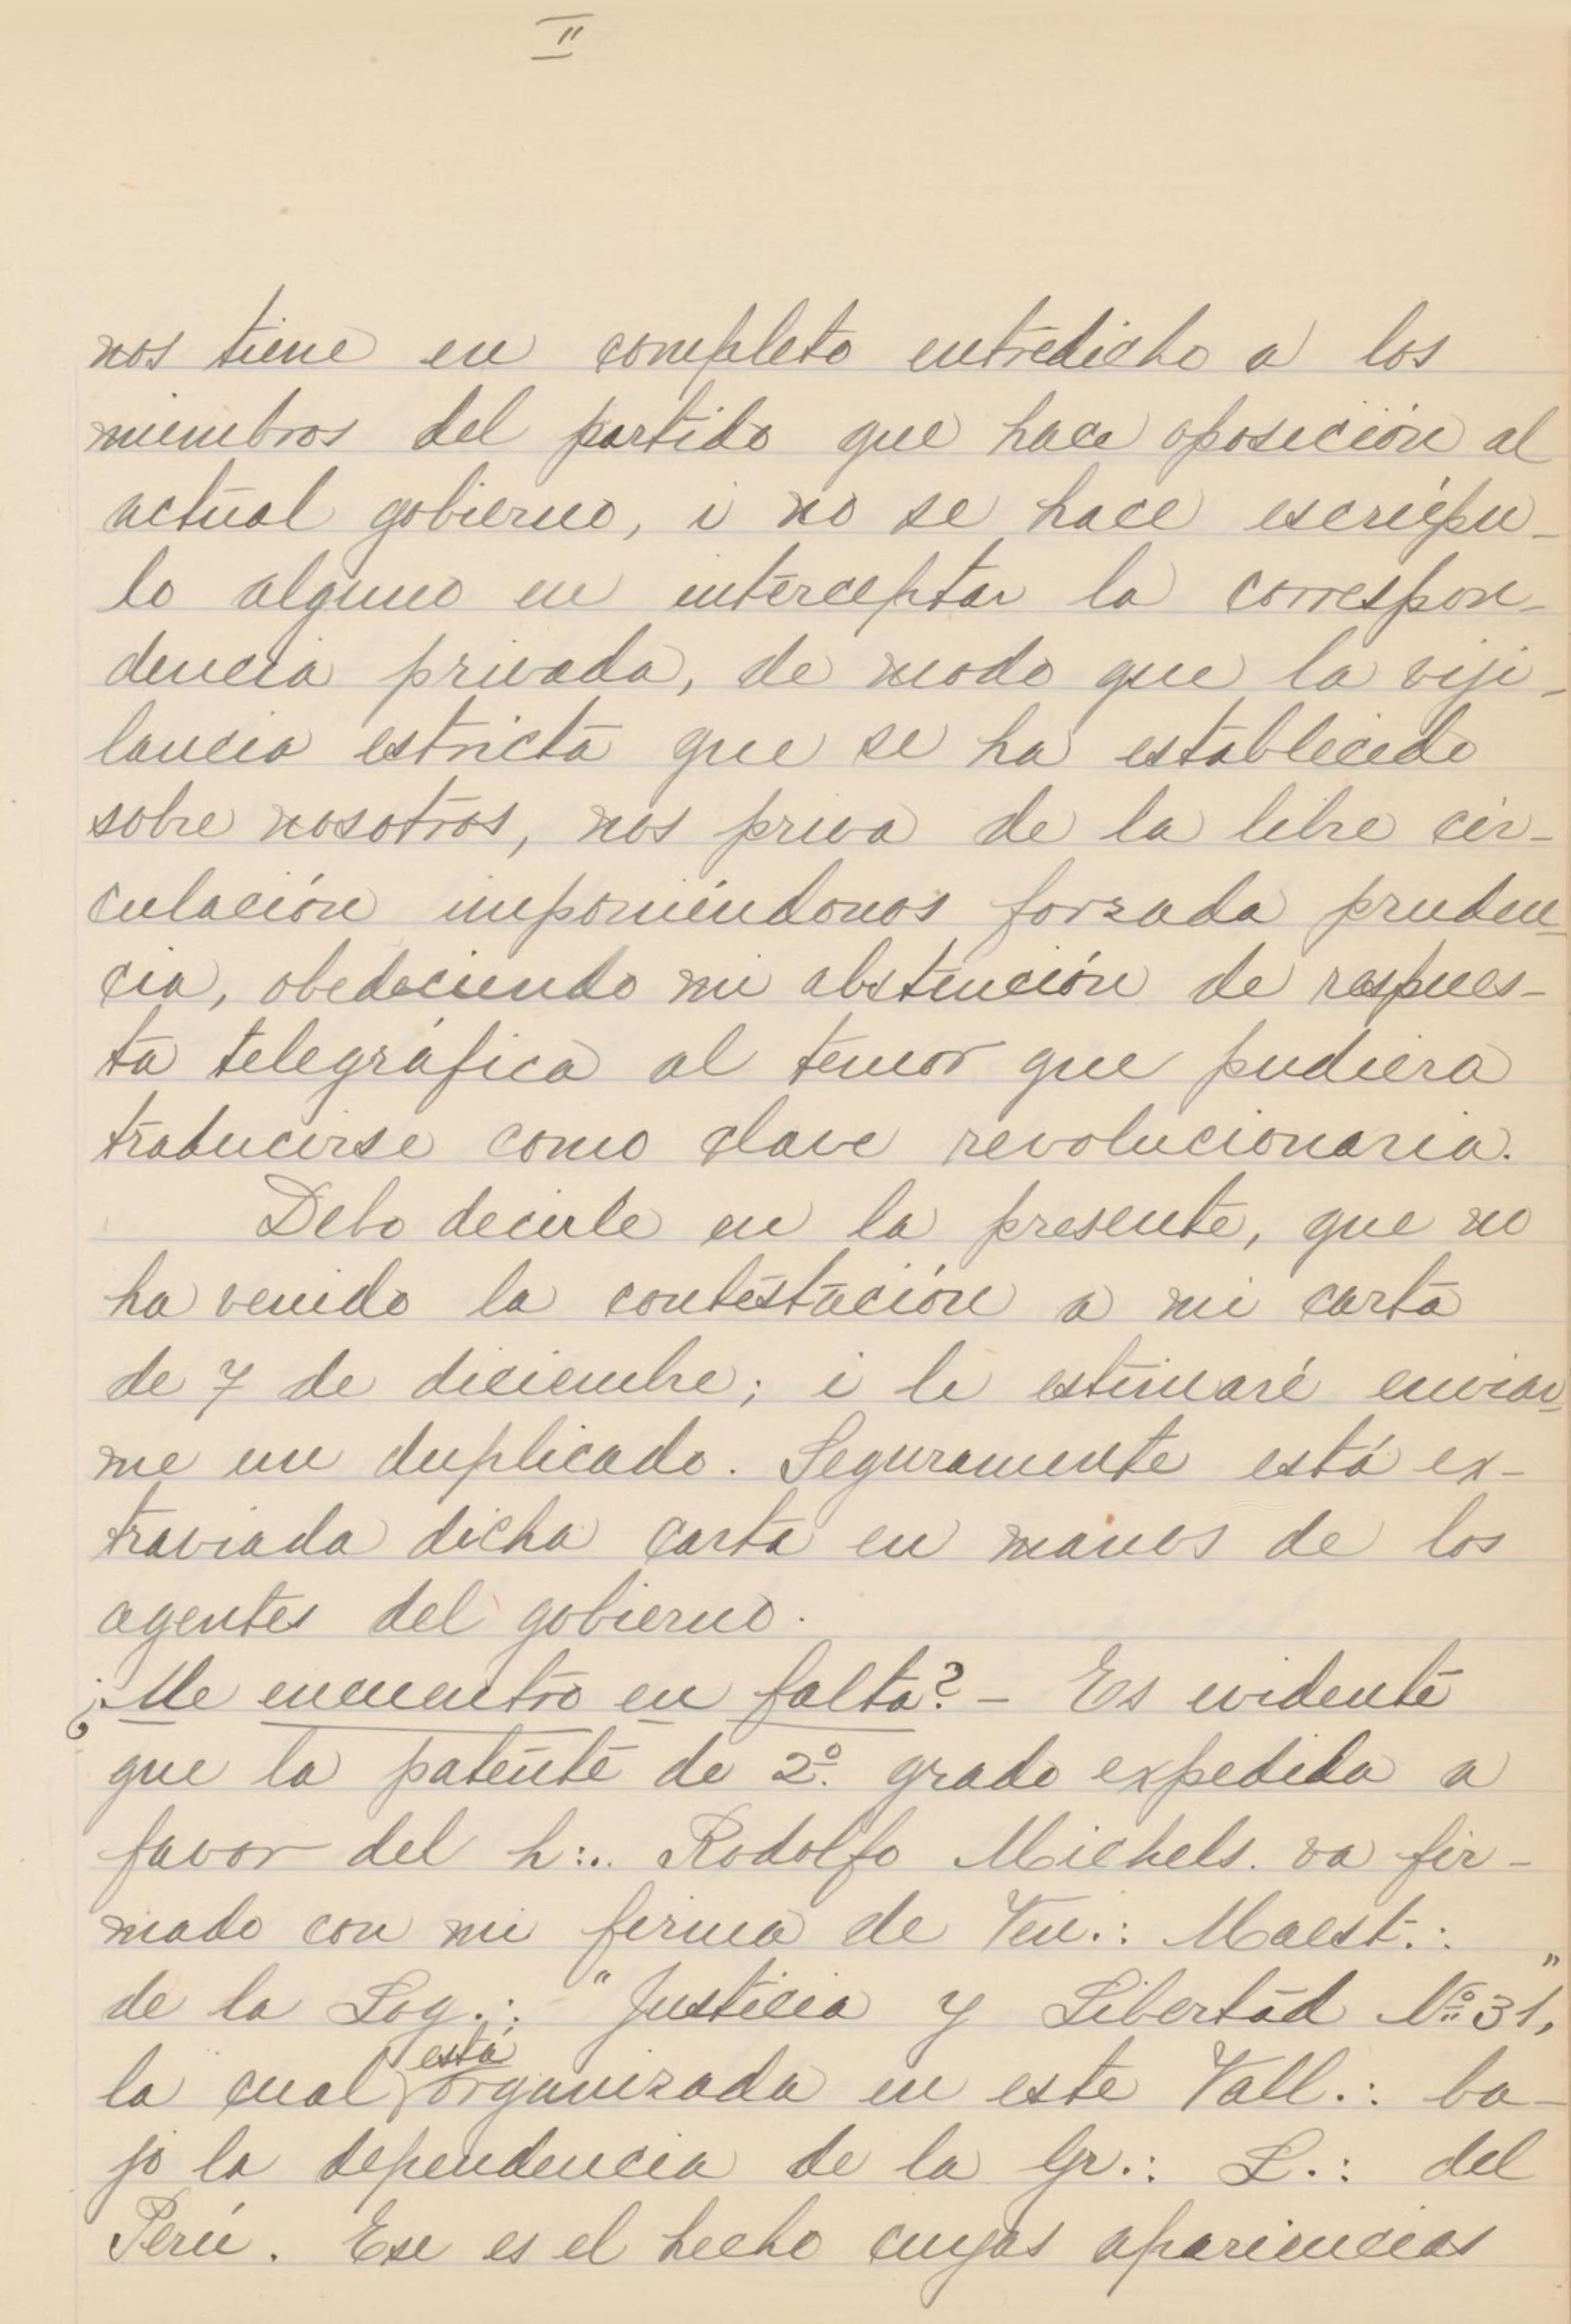 II
nos tiene en completo entredicho a los
miembros del partido que hace oposición al
actual gobierno, i no se hace escrúpu-
lo alguno en interceptar la correspon-
dencia privada, de modo que la viji-
lancia estricta que se ha establecido
sobre nosotros, nos priva de la libre cir-
culación imponiéndonos forzada pruden-
cia, obedeciendo mi abstención de respues-
ta telegráfica al temor que pudiera
traducirse como clave revolucionaria.
Debo decirle en la presente, que no
ha venido la contestación a mi carta
de 7 de diciembre; i le estimaré enviar-
me un duplicado. Seguramente está ex-
traviada dicha carta en manos de los
agentes del gobierno.
¿Me encuentro en falta? - Es evidente
que la patente de 2º. grado expedida a
favor del h:. Rodolfo Michels. va fir-
mado con mi firma de Ven.: Maest.:
de la Log.: "Justicia y Libertad Nº 31",
la cual está organizada en este Vall.: ba-
jo la dependencia de la Gr.: L.: del
Perú. Ese es el hecho cuyas apariencias